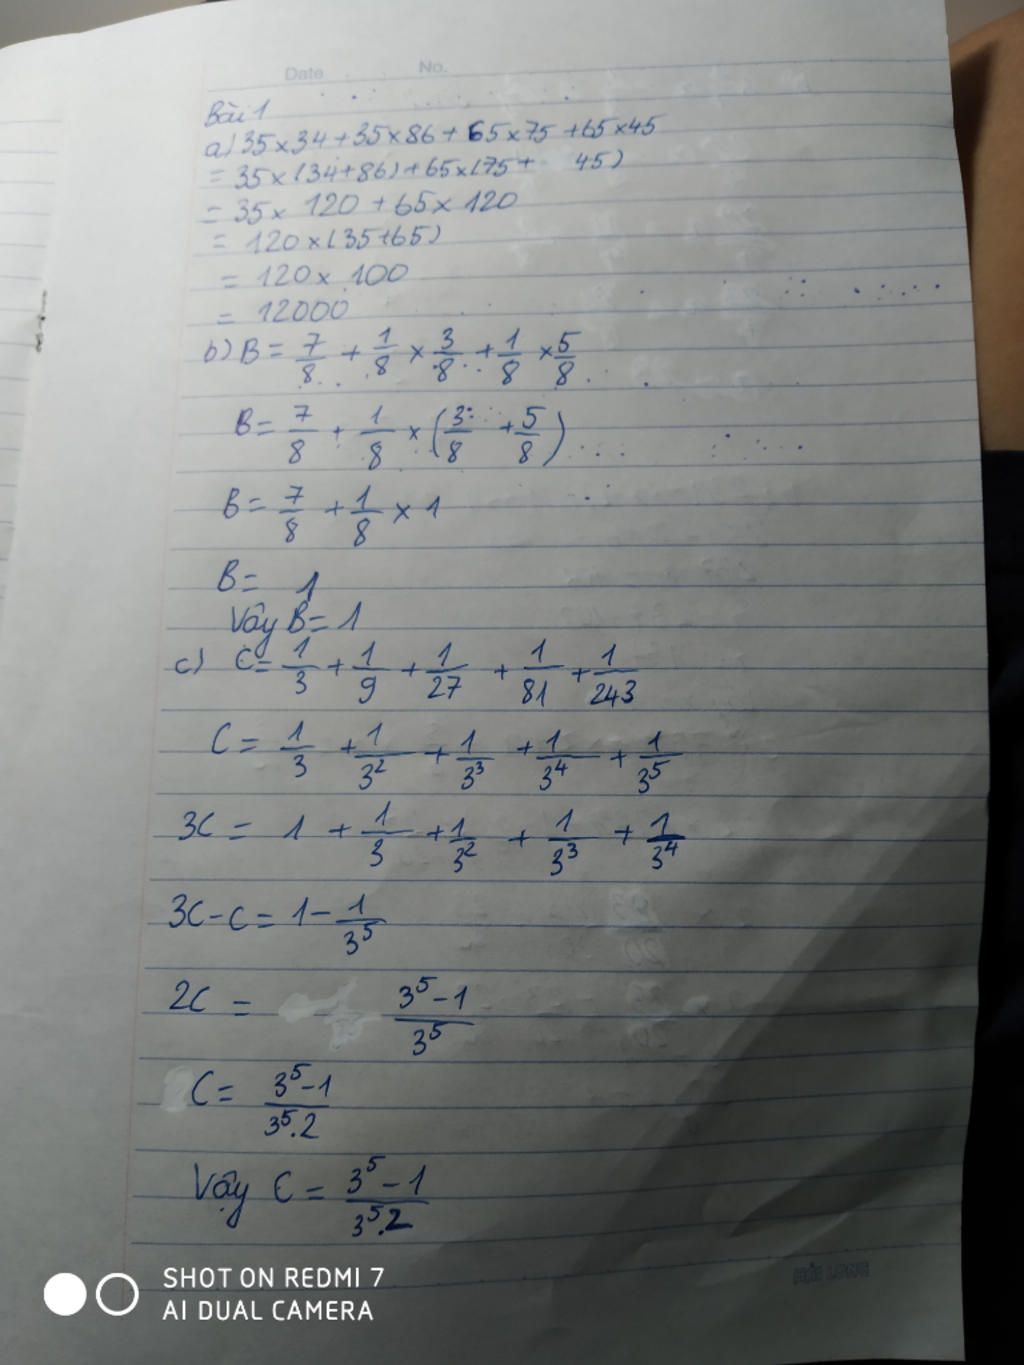 Date No.
Bài 1
a) 35 x 34 + 35 x 86 + 65 x 75 + 65 x 45
= 35 x (34 + 86) + 65 x (75 + 45)
= 35 x 120 + 65 x 120
= 120 x (35 + 65)
= 120 x 100
= 12000
b) B = 7/8 + 1/8 x 3/8 + 1/8 x 5/8
B = 7/8 + 1/8 x (3/8 + 5/8)
B = 7/8 + 1/8 x 1
B = 1
Vậy B = 1
c) C = 1/3 + 1/9 + 1/27 + 1/81 + 1/243
C = 1/3 + 1/3² + 1/3³ + 1/3⁴ + 1/3⁵
3C = 1 + 1/3 + 1/3² + 1/3³ + 1/3⁴
3C - C = 1 - 1/3⁵
2C = 3⁵-1/3⁵
C = 3⁵-1/3⁵.2
Vậy C = 3⁵-1/3⁵.2
HẢI LONG
SHOT ON REDMI 7
AI DUAL CAMERA